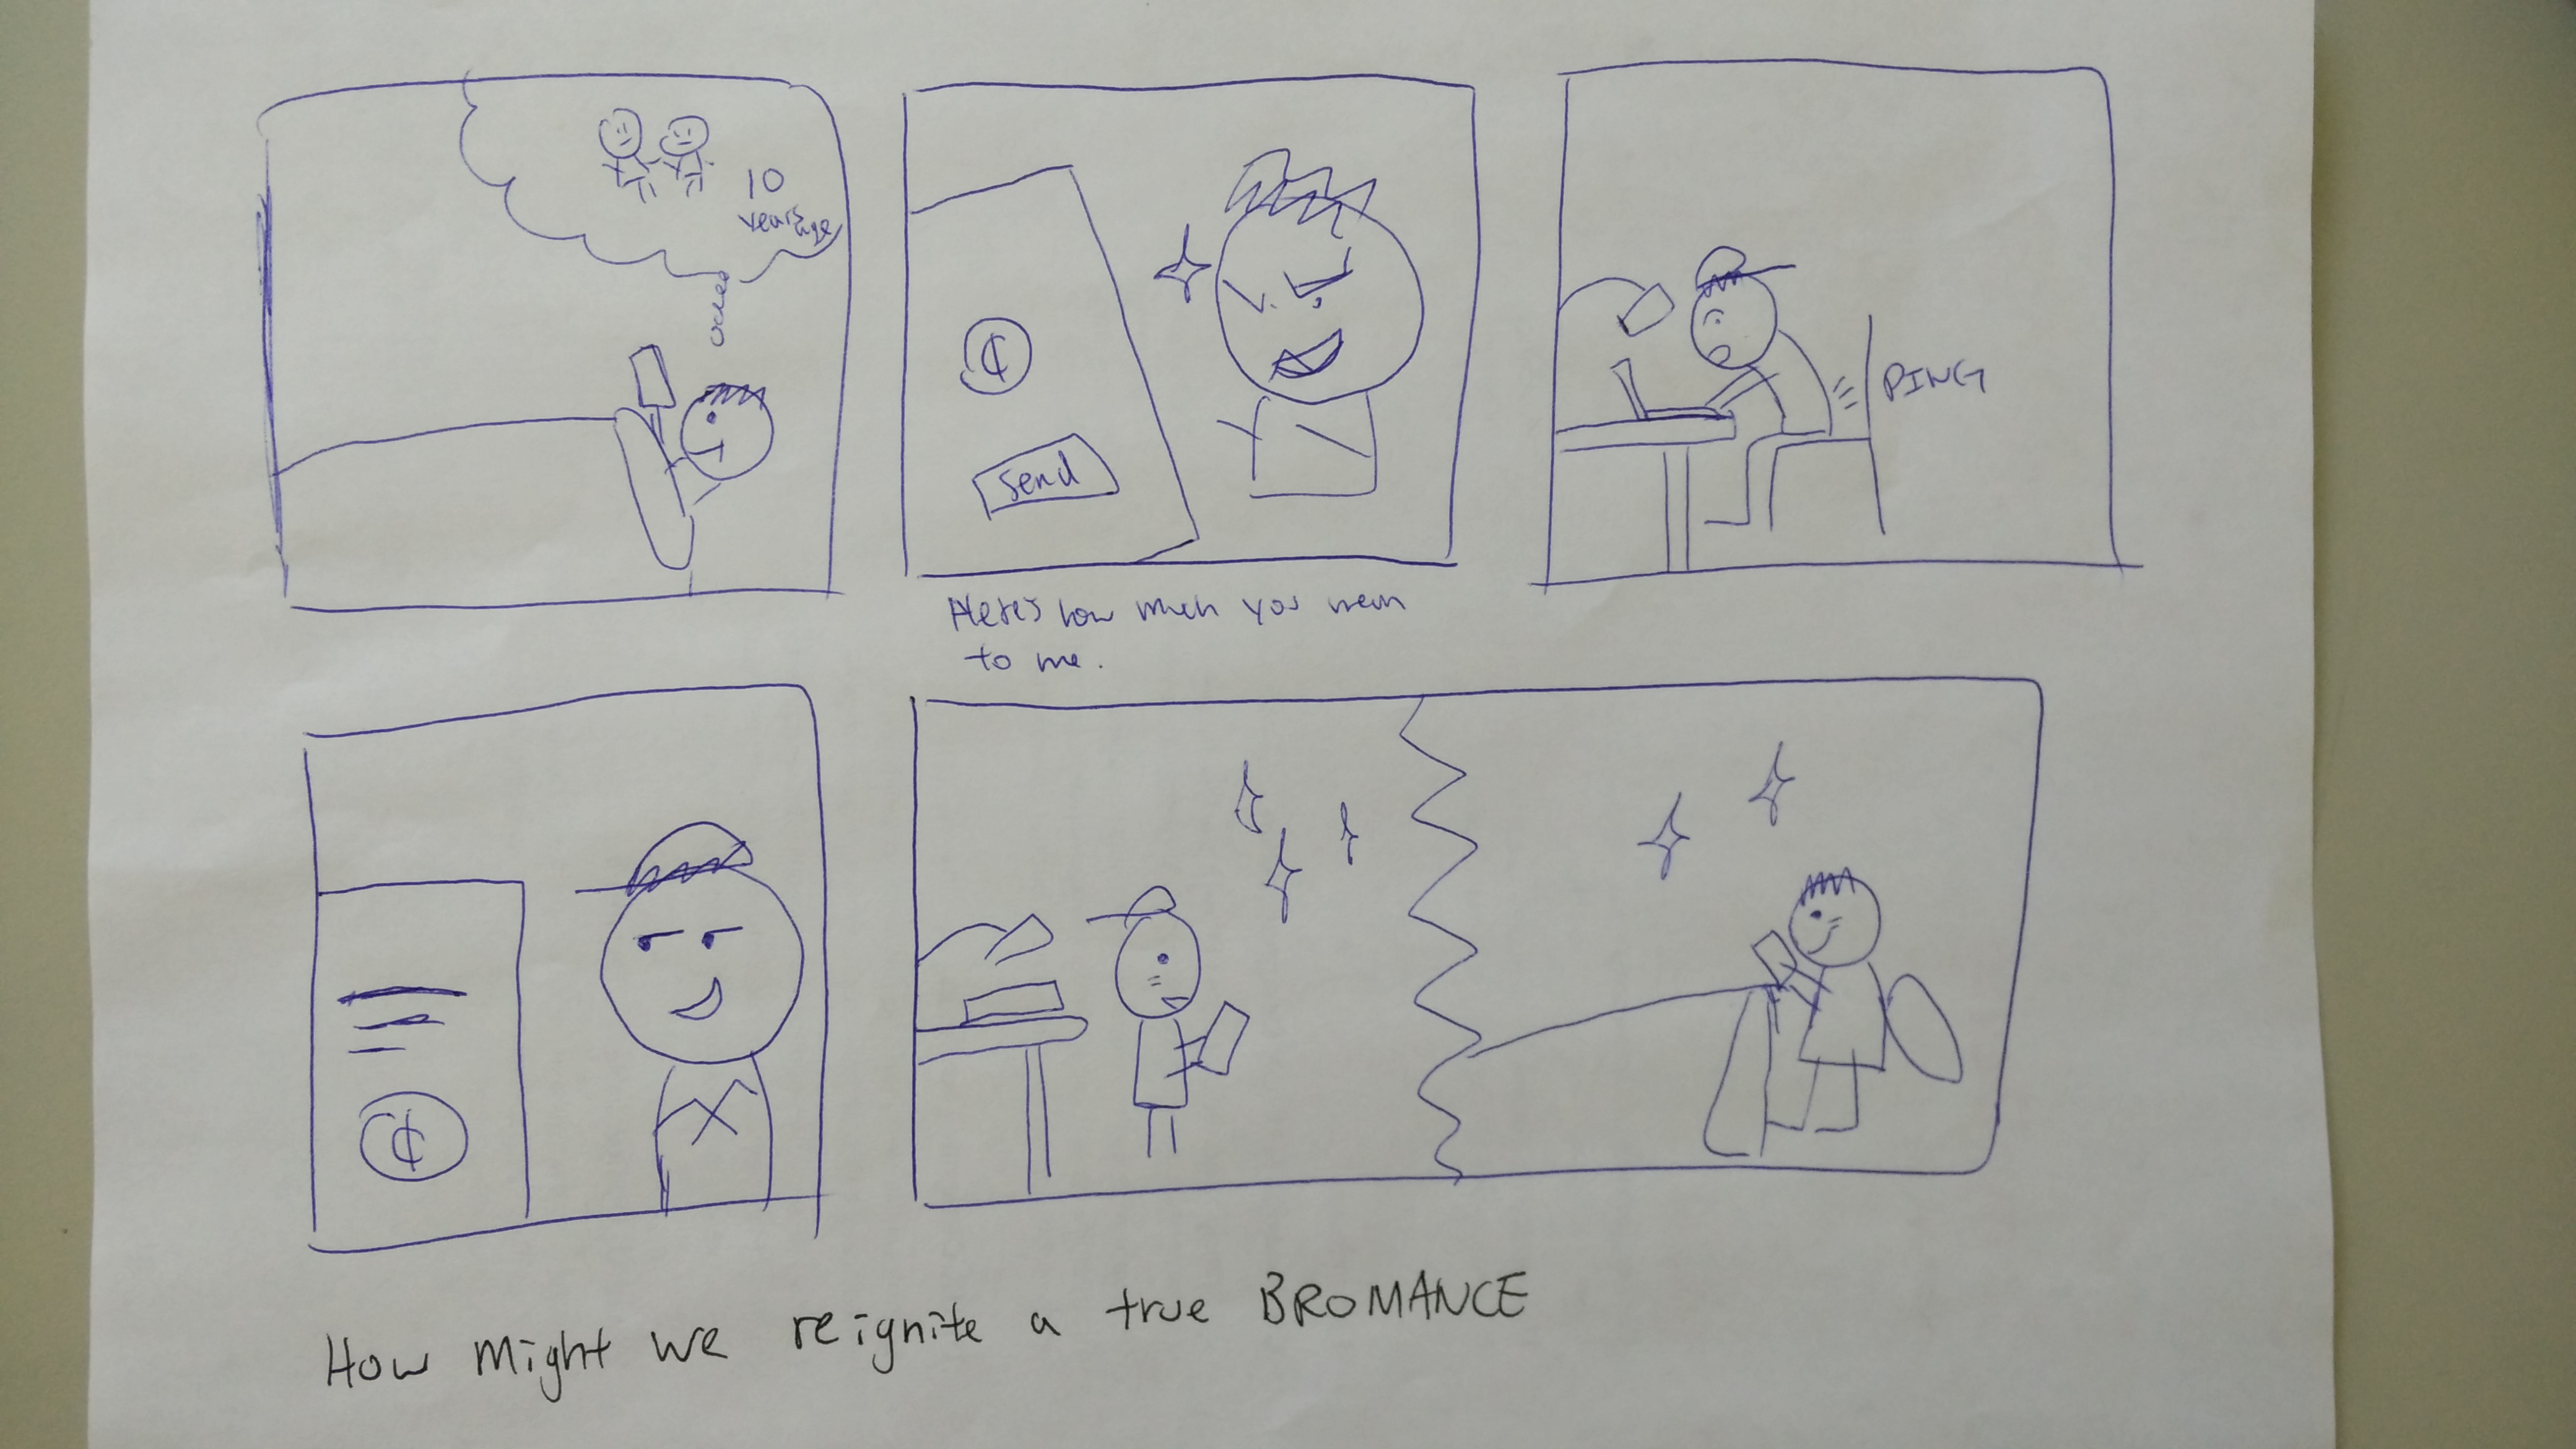 10
years
ago
¢
Send
PING
Here's how much you mean
to me.
¢
How might we reignite a true BROMANCE